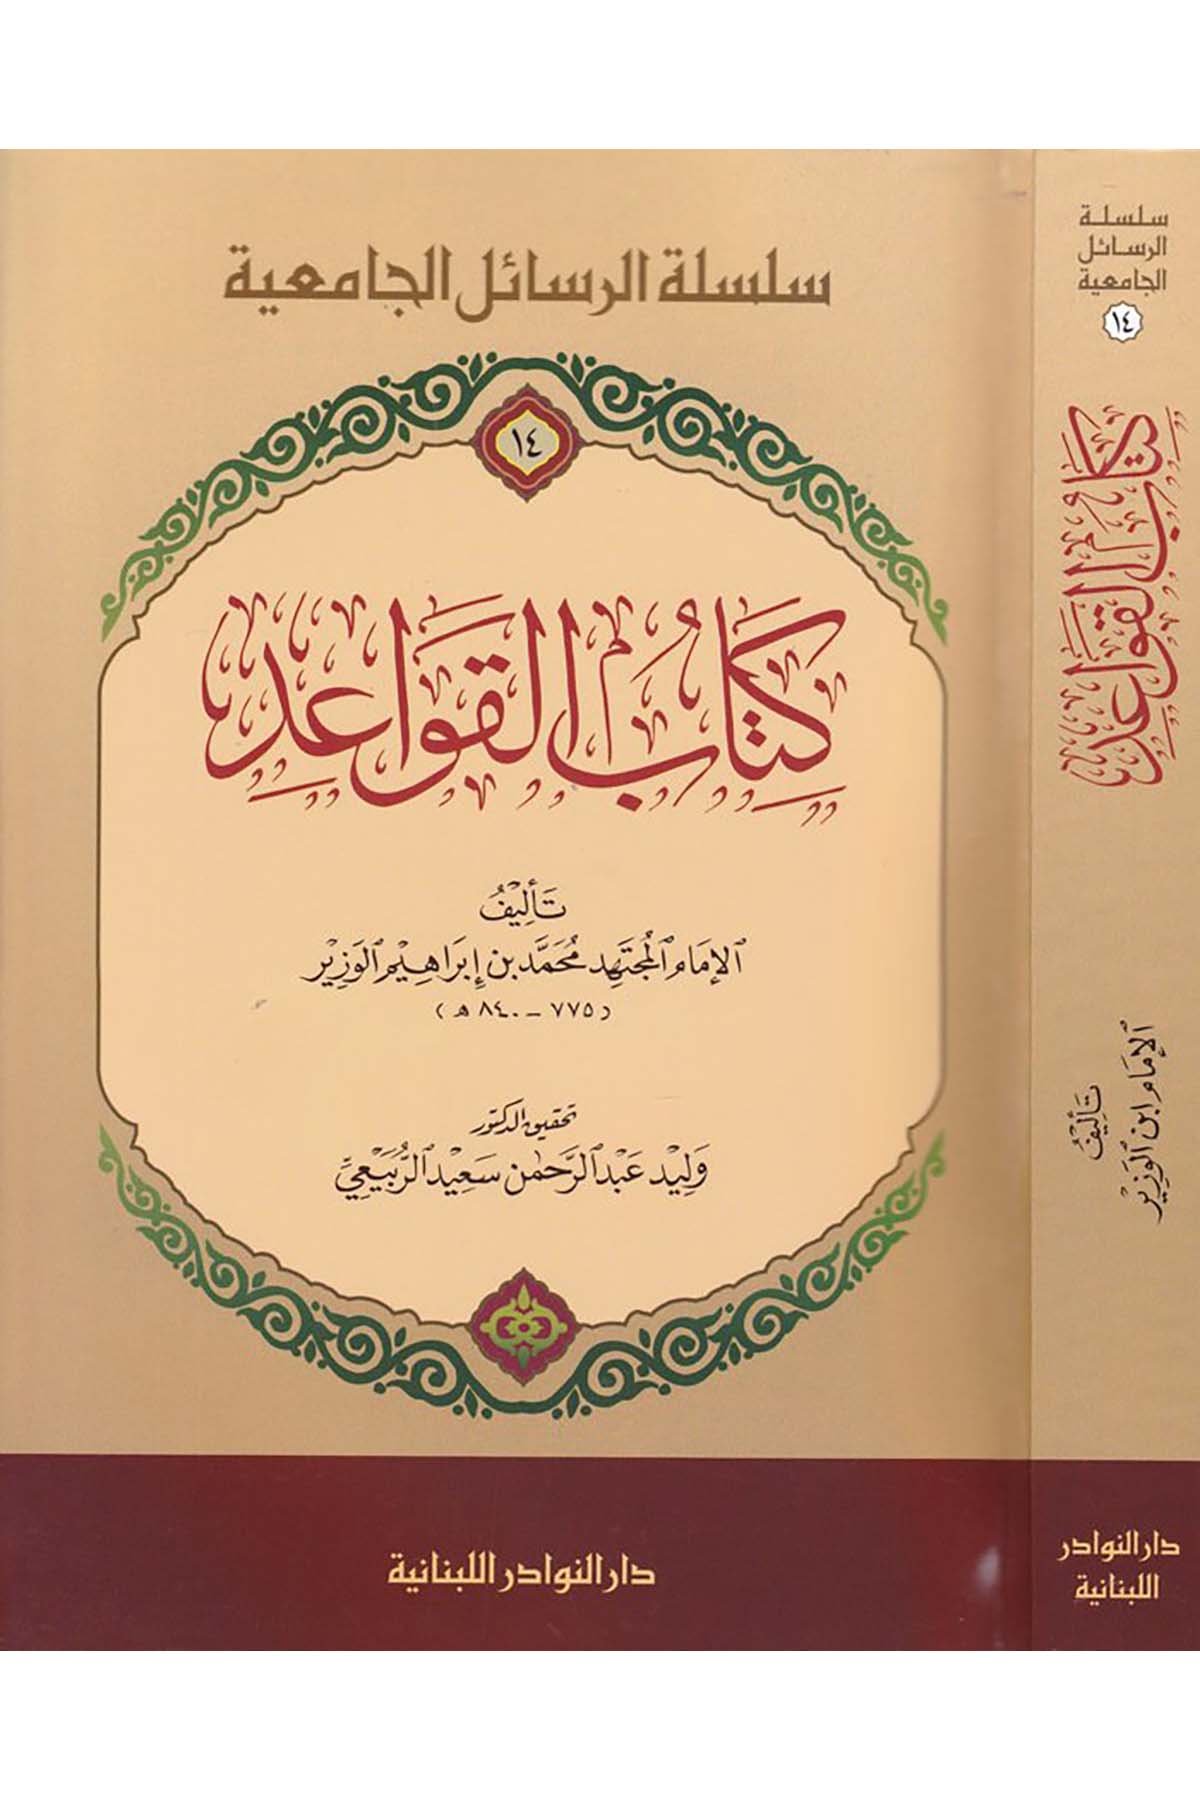 سلسلة الرسائل الجامعية
١٤
كِتَابُ القَوَاعِدِ
تَأليفُ
الإمَام المُجتَهِد مُحَمَّد بن إبرَاهِيْم الوَزِيْر
(٧٧٥ - ٨٤٠ هـ)
تحقيق الدكتور
وَلِيْد عَبْد الرَّحْمٰن سَعِيْد الرُّبَيْعِيّ
دار النوادر اللبنانية
سلسلة
الرسائل
الجامعية
١٤
كِتَابُ القَوَاعِدِ
تَأليفُ
الإمَام ابن الوَزِيْر
دار النوادر
اللبنانية